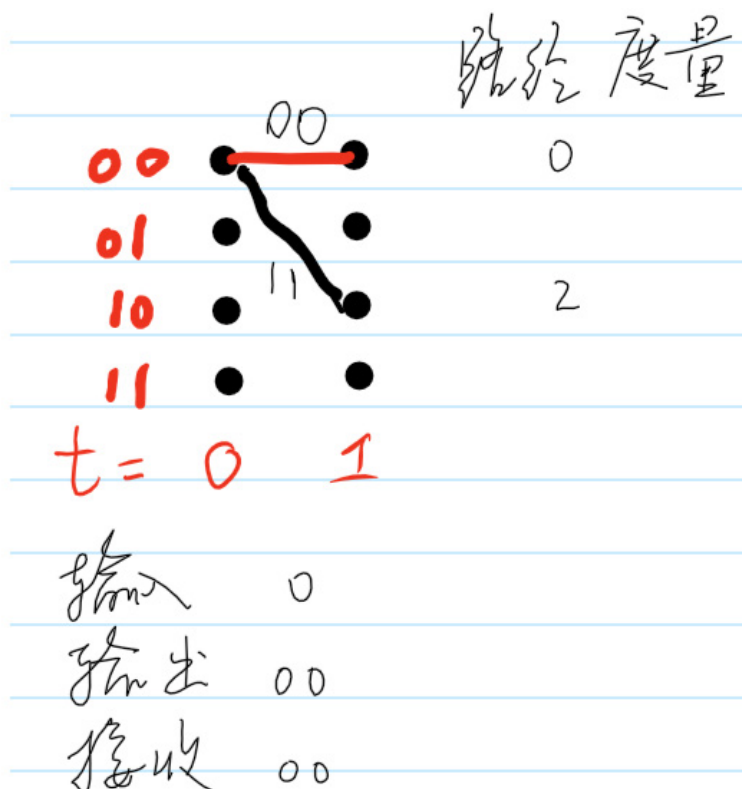 路径度量
00
00 0
01
10 11 2
11
t= 0 1
输入 0
输出 00
接收 00